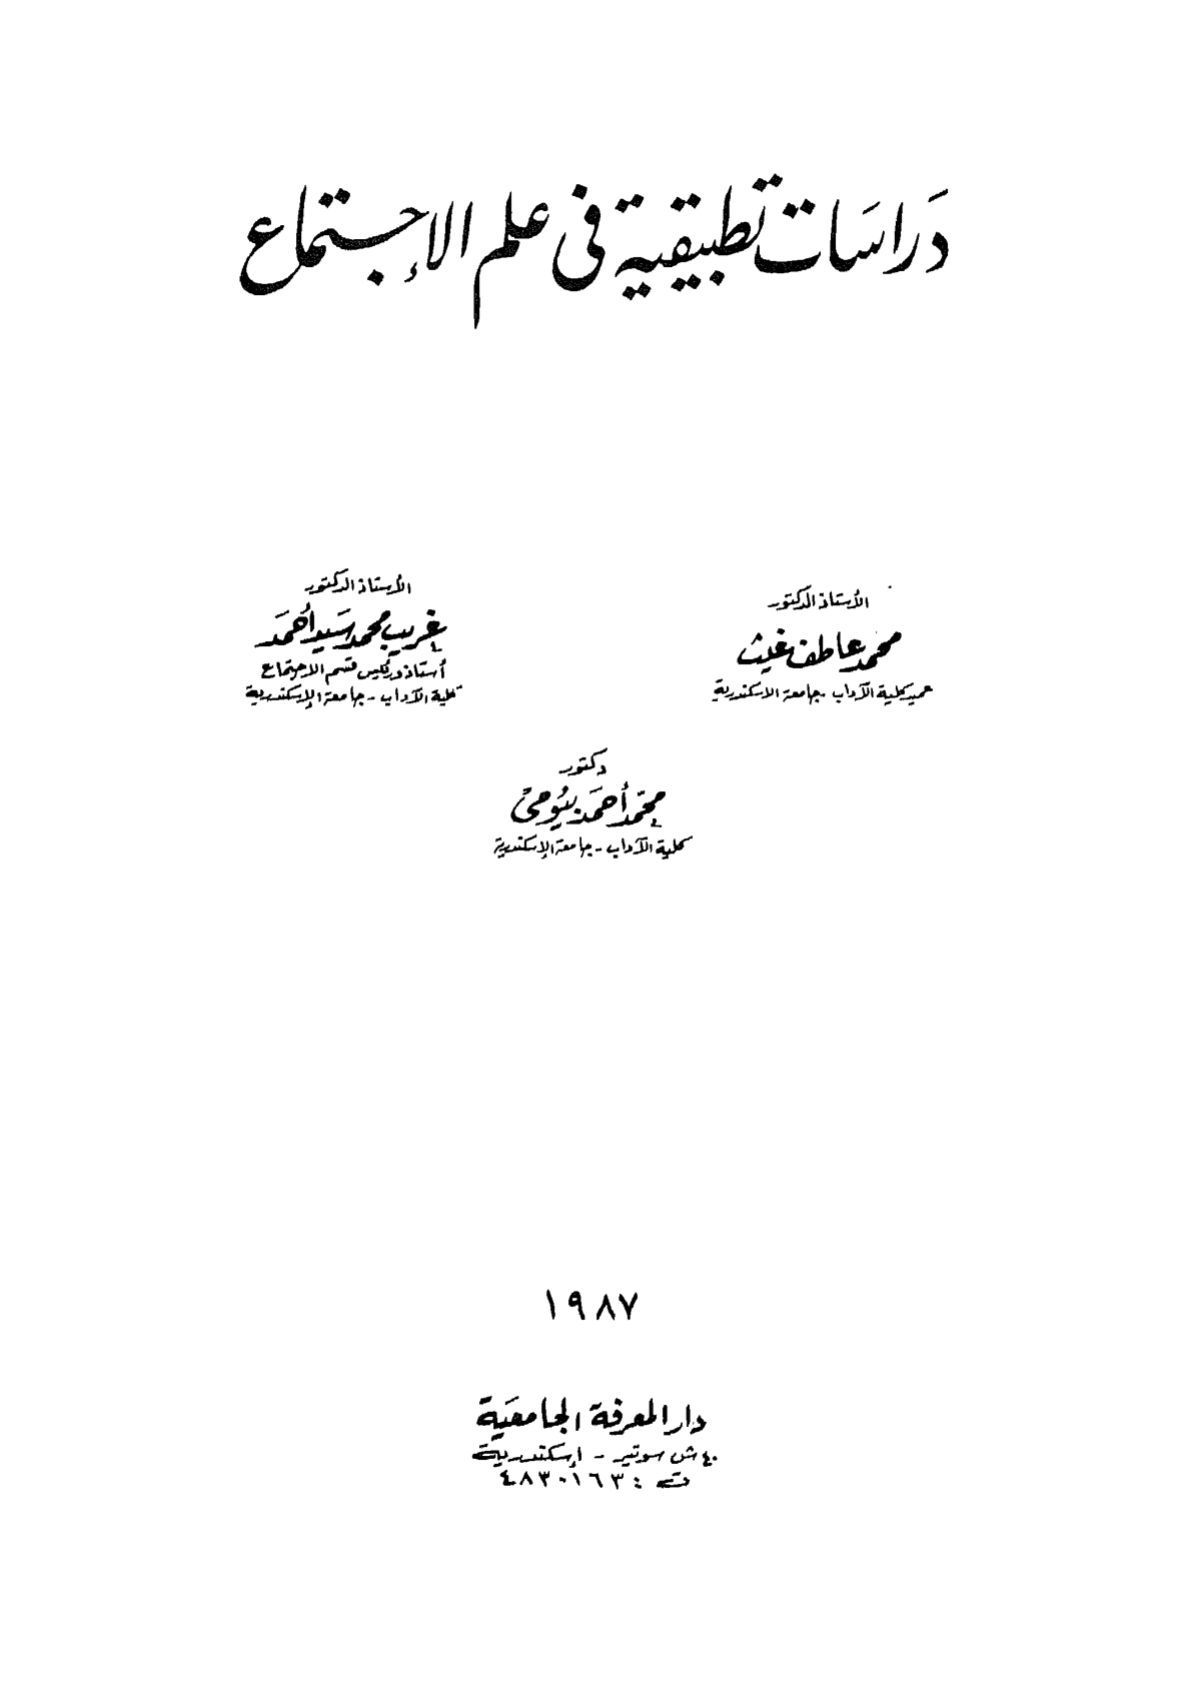 دراسات تطبيقية في علم الإجتماع
الأستاذ الدكتور
محمد عاطف غيث
عميد كلية الآداب - جامعة الاسكندرية
الأستاذ الدكتور
غريب محمد سيد أحمد
أستاذ ورئيس قسم الاجتماع
كلية الآداب - جامعة الإسكندرية
دكتور
محمد أحمد بيومى
كلية الآداب - جامعة الإسكندرية
١٩٨٧
دار المعرفة الجامعية
٤٠ ش سوتير - إسكندرية
ت : ٤٨٣٠١٦٣